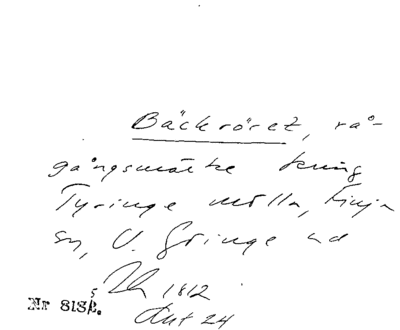 Bäckröret, rå-
gångsmärke kring
Tyringe mölla, Finja
sn, V. Göinge hd
1812
Akt 24